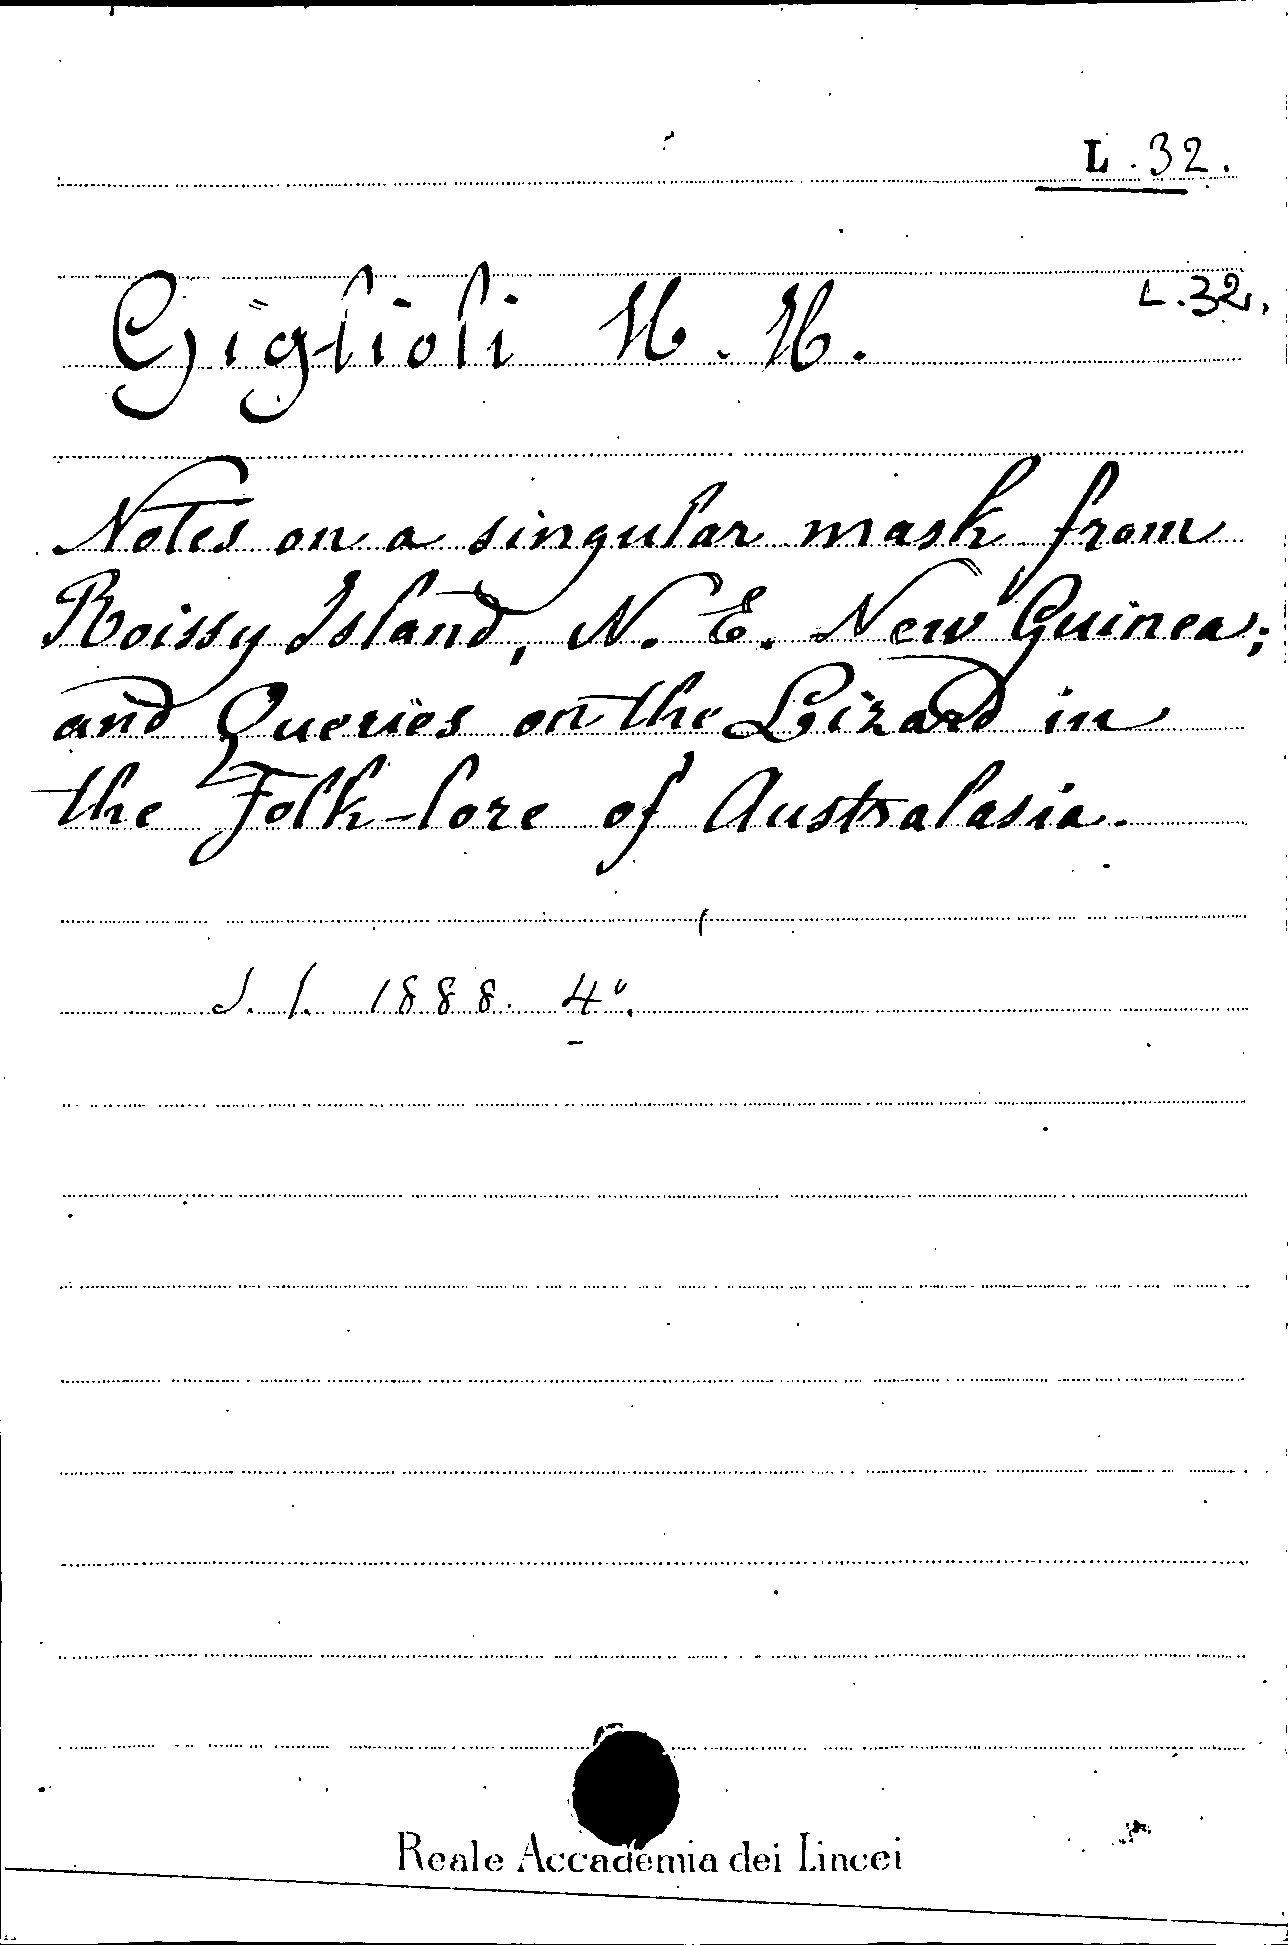 L. 32.
L. 32.
Giglioli H. H.
Notes on a singular mask from
Roissy Island, N. E. New Guinea;
and Queries on the Lizard in
the Folk-lore of Australasia.
S. l. 1888. 4°.
Reale Accademia dei Lincei